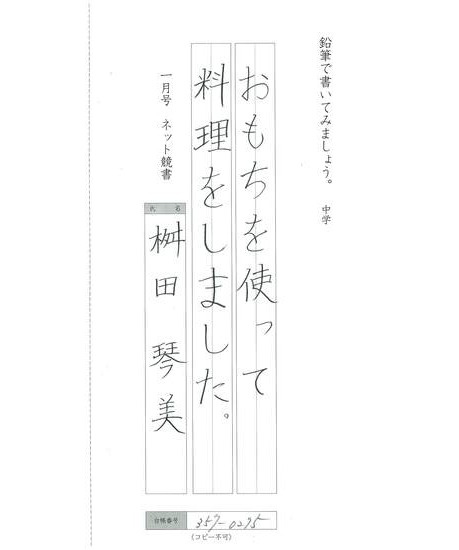 鉛筆で書いてみましょう。 中学
おもちを使って
料理をしました。
一月号 ネット競書
氏 名
桝田 琴美
台帳番号
357-0275
(コピー不可)